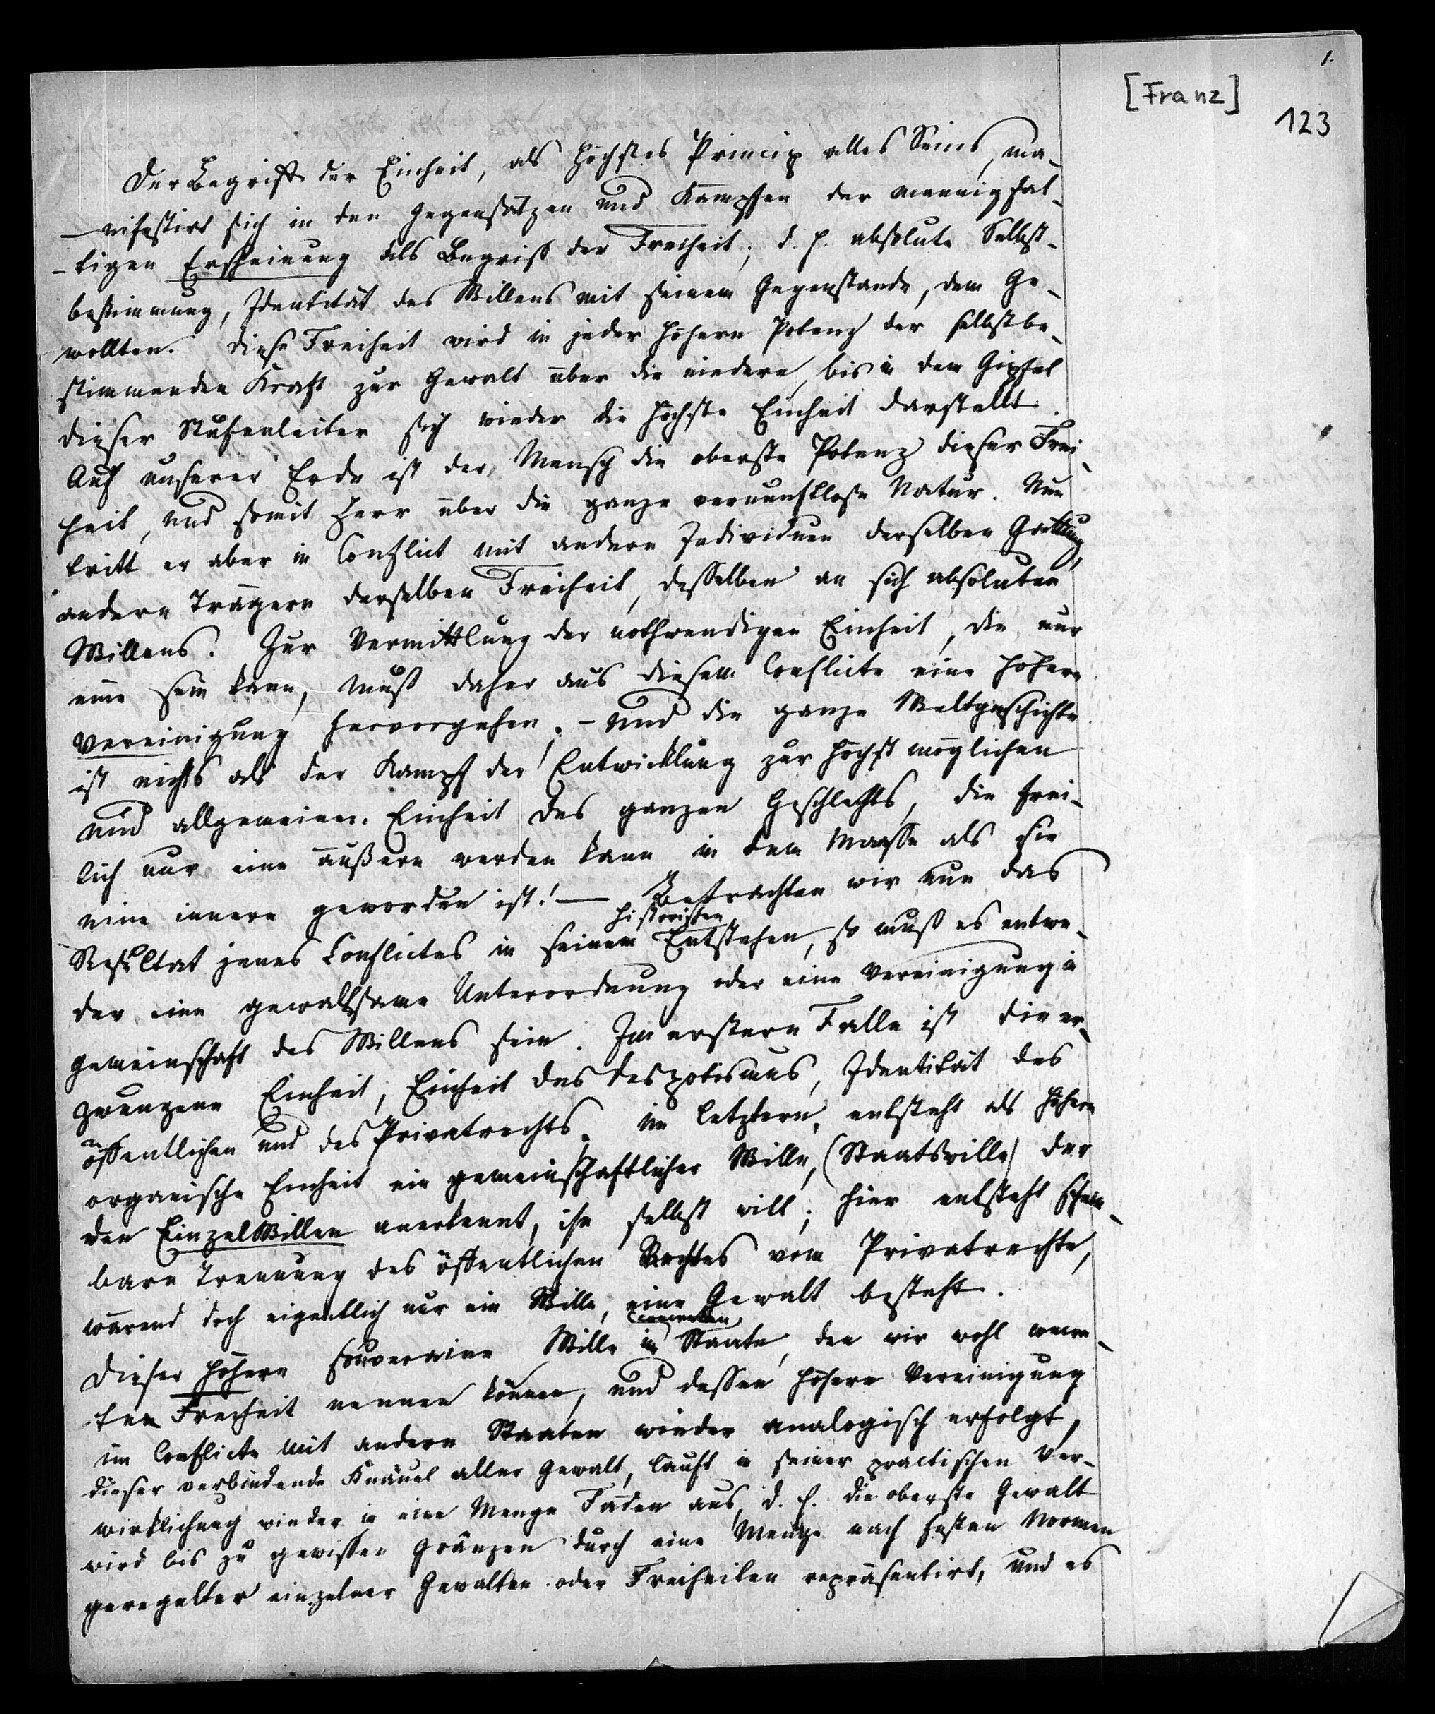 1.
[Franz]
123
Der Begriff der Einheit, als höchstes Princip alles Seins, ma-
nifestirt sich in den Gegensätzen und Kämpfen der mannigfal-
tigen Erscheinung als Begriff der Freiheit, d. h. absolute Selbst-
bestimmung, Identität des Willens mit seinem Gegenstande, dem Ge-
wollten. Diese Freiheit wird in jeder höhern Potenz der selbstbe-
stimmenden Kraft zur Gewalt über die niedere, bis in dem Gipfel
dieser Stufenleiter sich wieder die höchste Einheit darstellt.
Auf unserer Erde ist der Mensch die oberste Potenz dieser Frei-
heit, und somit Herr über die ganze vernunftlose Natur. Nun
tritt er aber in Conflict mit andern Individuen derselben Gattung,
andern Trägern derselben Freiheit, desselben an sich absoluten
Willens. Zur Vermittlung der nothwendigen Einheit, die nur
eine sein kann, muß daher aus diesem Conflicte eine höhere
Vereinigung hervorgehen, - und die ganze Weltgeschichte
ist nichts als der Kampf der Entwicklung zur höchst möglichen
und allgemeinen Einheit des ganzen Geschlechts, die frei-
lich nur eine äußere werden kann in dem Maasse als sie
eine innere geworden ist! — Betrachten wir nun das
Resultat jenes Conflictes in seinem historischen Entstehen, so muß es entwe-
der eine gewaltsame Unterordnung oder eine Vereinigung in
Gemeinschaft des Willens sein. Im erstern Falle ist die er-
zwungene Einheit, Einheit des Despotismus, Identität des
öffentlichen und des Privatrechts, im letztern, entsteht als höhere
organische Einheit ein gemeinschaftlicher Wille, (Staatswille) der
den Einzelwillen anerkennt, ihn selbst will; hier entsteht schein-
bare Trennung des öffentlichen Rechtes vom Privatrechte,
wärend doch eigentlich nur ein Wille, eine Gewalt besteht.
Dieser höhere souveraine Wille im Staate, den wir wohl
ten Freiheit nennen können, und dessen höhere Vereinigung
im Conflicte mit andern Staaten wieder analogisch erfolgt,
dieser verbindende Knäuel aller Gewalt, läuft in seiner practischen Ver-
wirklichung wieder in eine Menge Fäden aus, d. h. die oberste Gewalt
wird bis zu gewissen Gränzen durch eine Menge nach festen Normen
geregelter einzelner Gewalten oder Freiheiten repräsentirt, und es